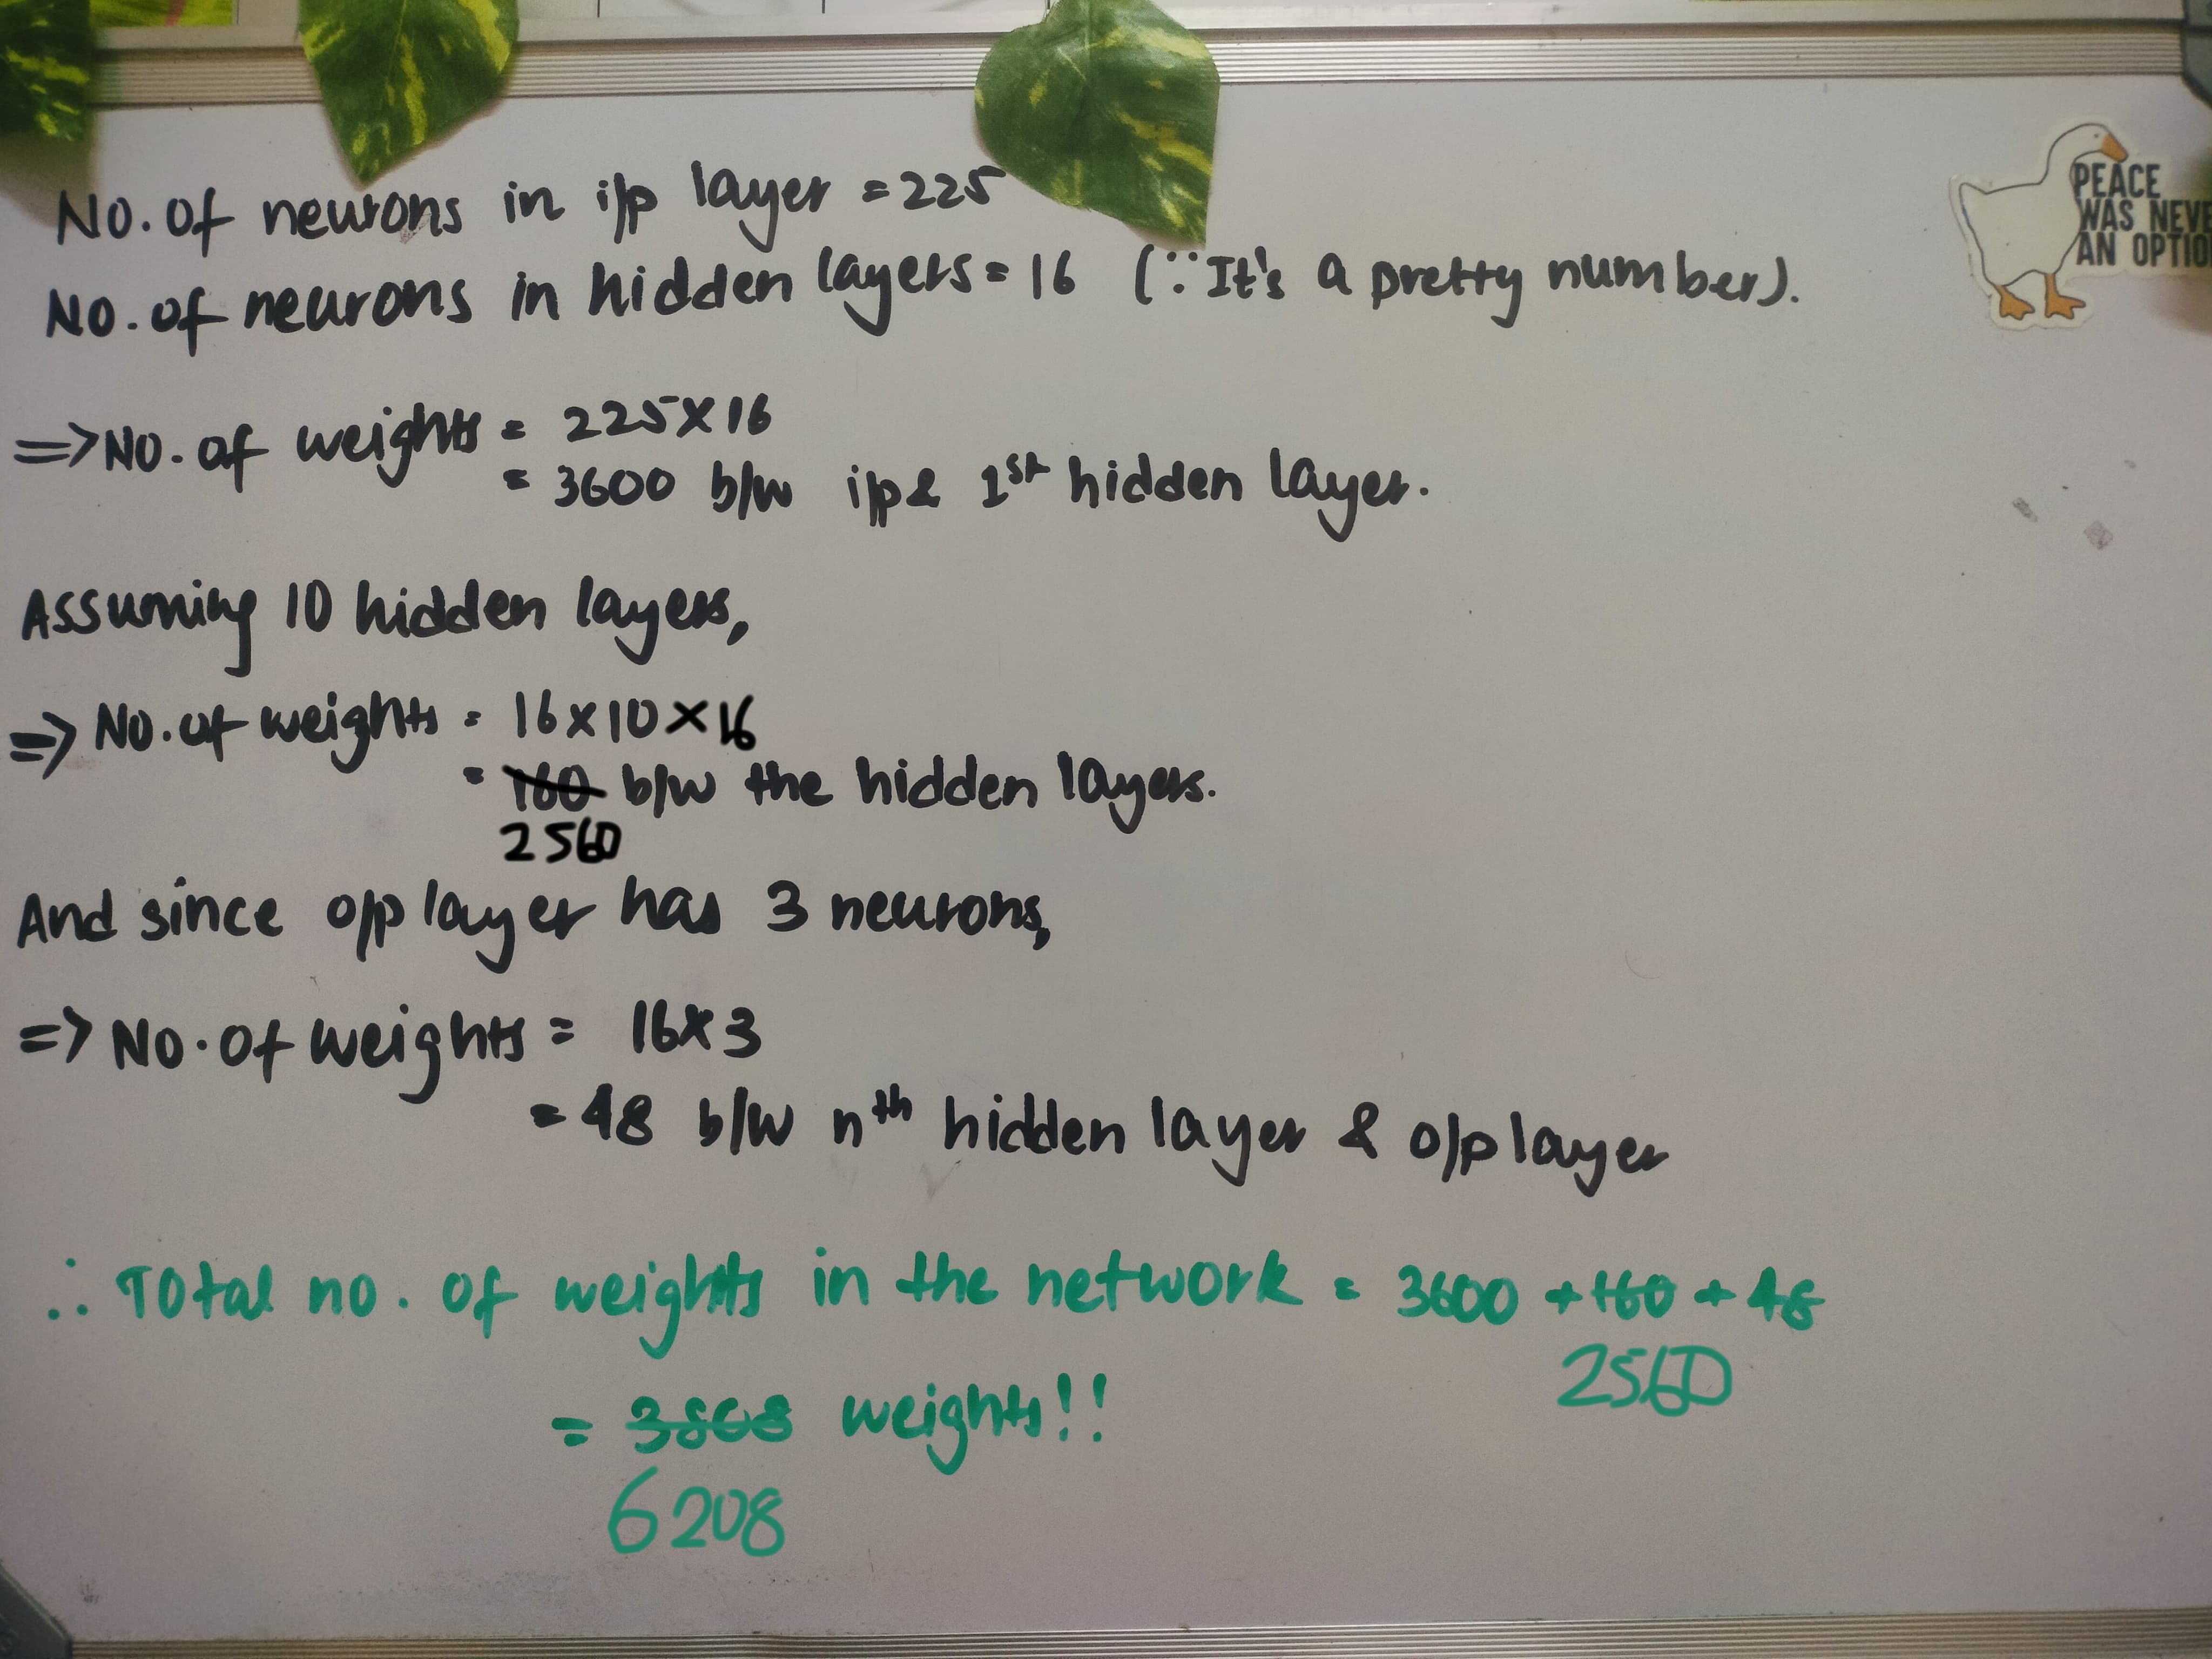 No. of neurons in i/p layer = 225
No. of neurons in hidden layers = 16 (∵ It's a pretty number).
=> No. of weights = 225 x 16
= 3600 b/w i/p & 1st hidden layer.
Assuming 10 hidden layers,
=> No. of weights = 16 x 10 x 16
= 160 b/w the hidden layers.
2560
And since o/p layer has 3 neurons,
=> No. of weights = 16 x 3
= 48 b/w nth hidden layer & o/p layer
∴ Total no. of weights in the network = 3600 + 160 + 48
2560
= 3808 weights!!
6208
PEACE
WAS NEVE
AN OPTIO